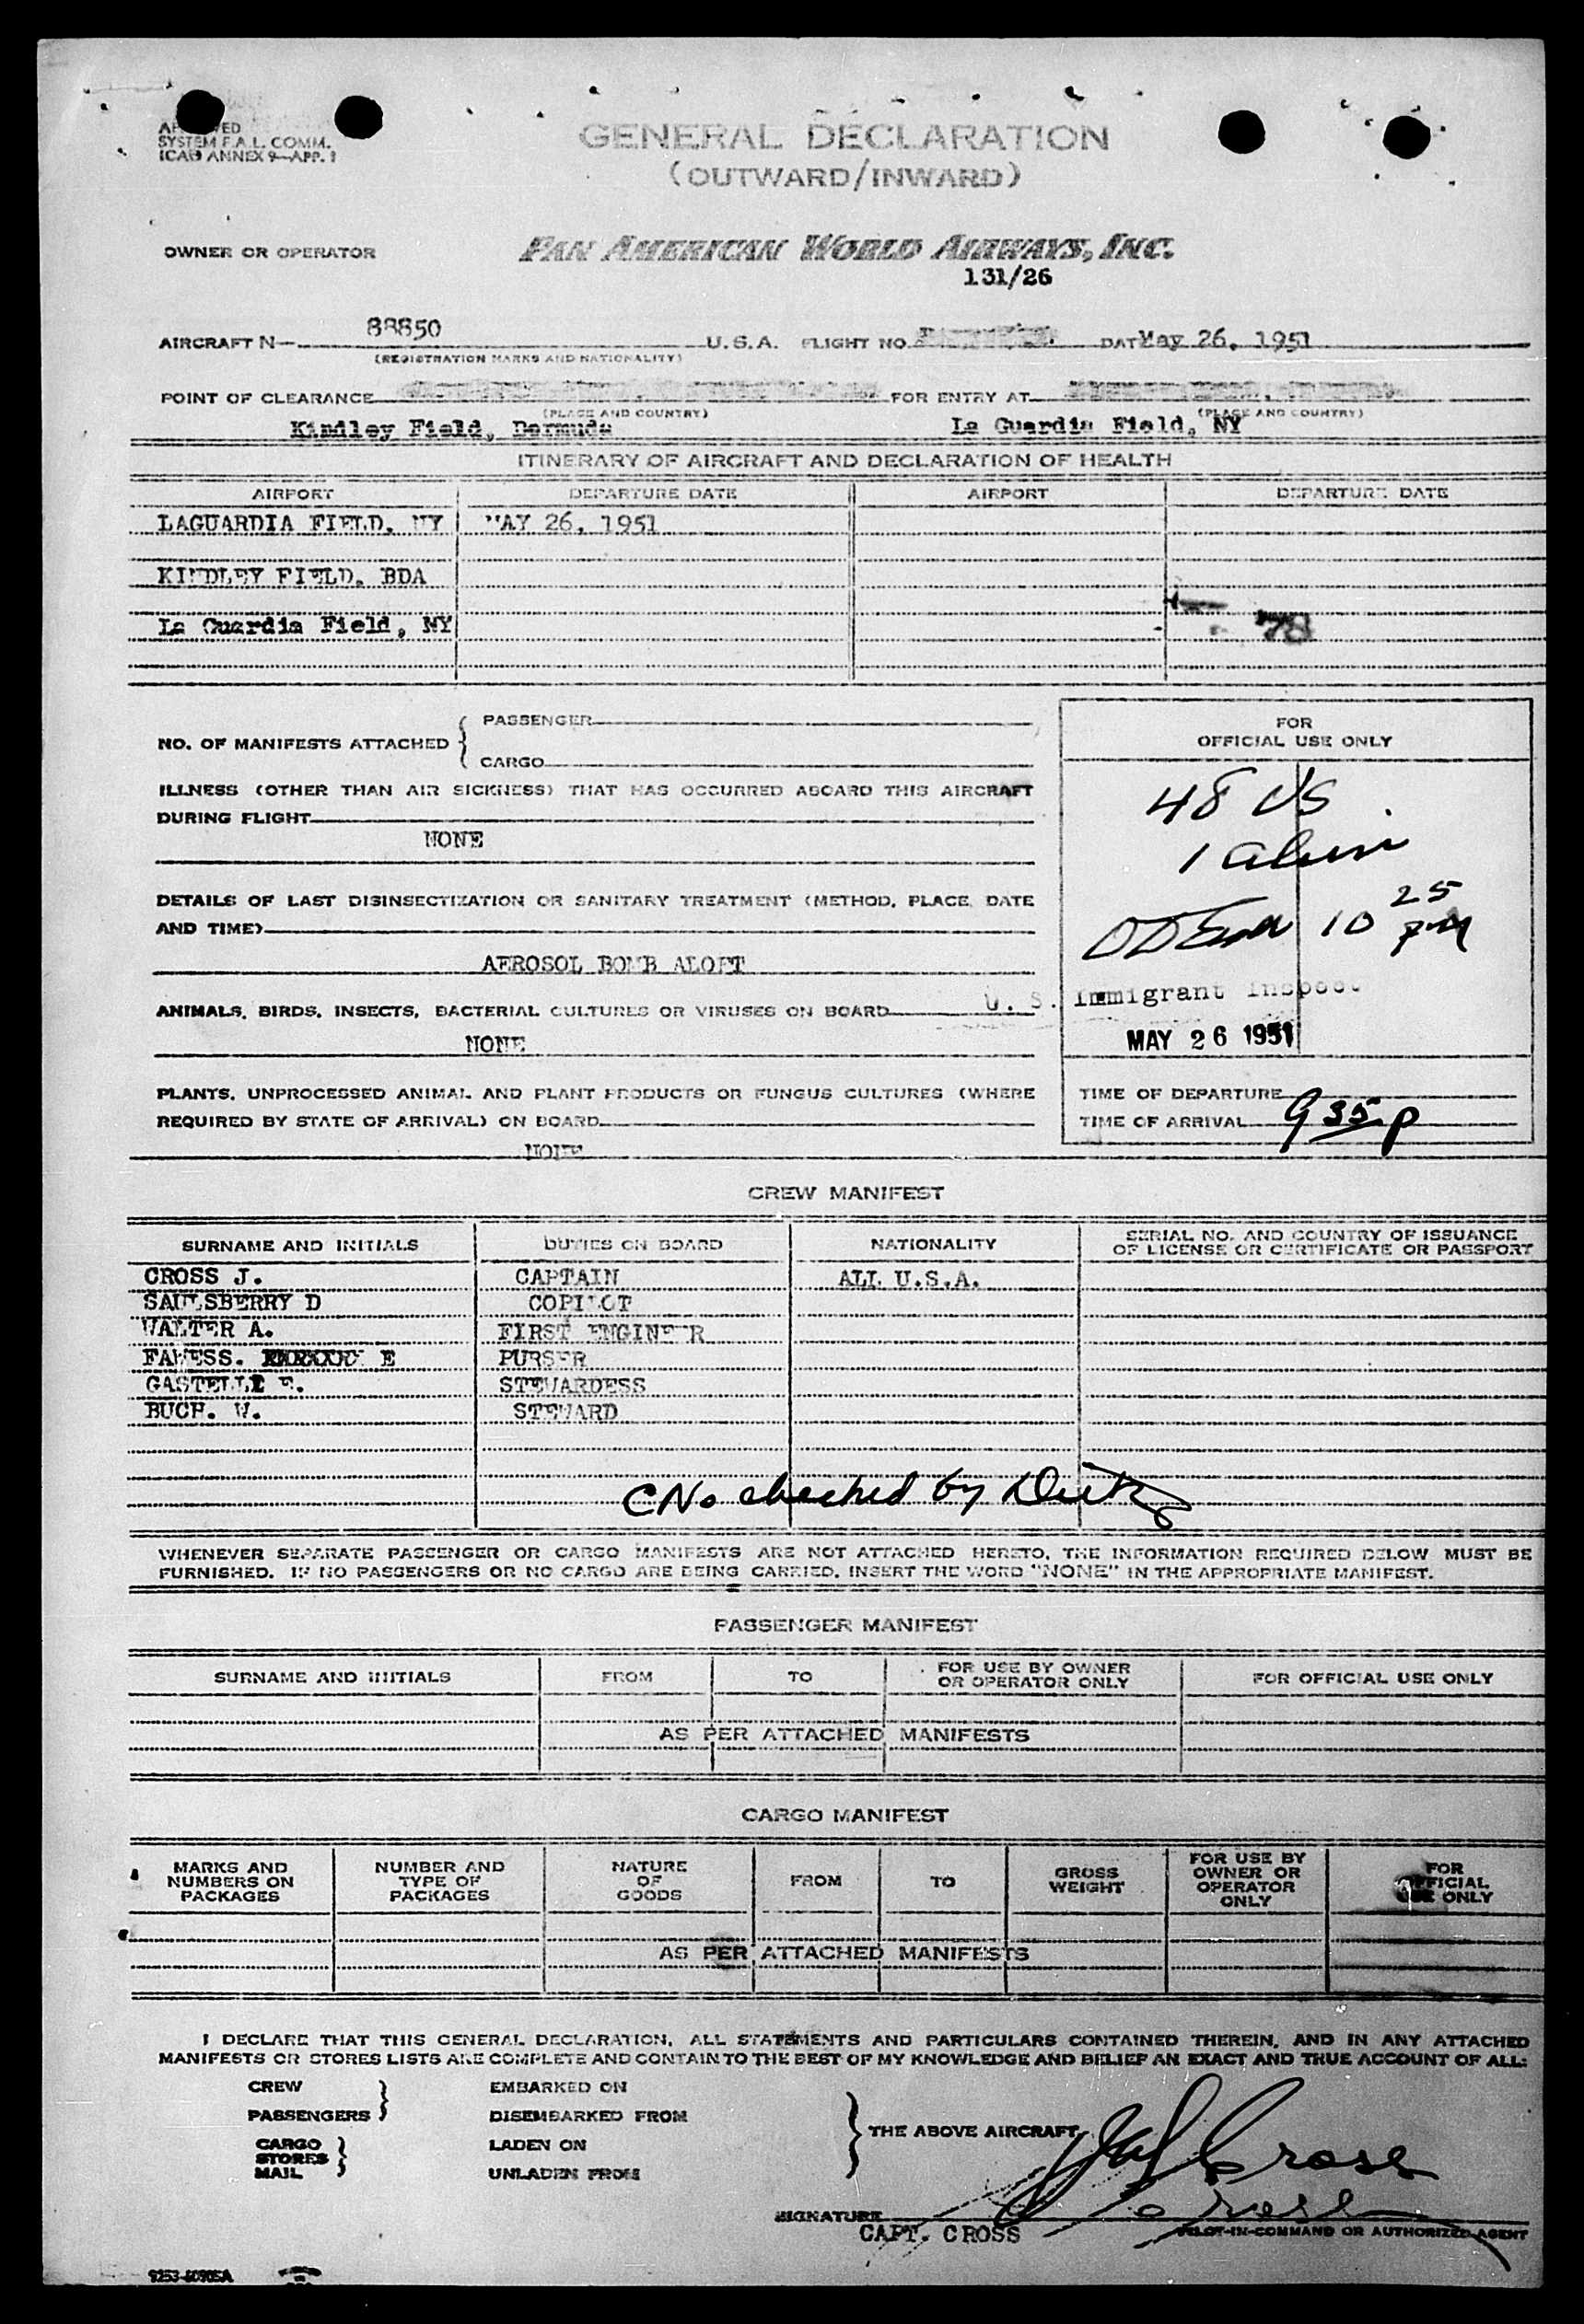 SYSTEM F.A.L. COMM.
ICAO ANNEX 9—APP. 1
GENERAL DECLARATION
(OUTWARD/INWARD)
OWNER OR OPERATOR PAN AMERICAN WORLD AIRWAYS, INC.
131/26
AIRCRAFT N— 88850 U.S.A. FLIGHT NO. DATE May 26, 1951
(REGISTRATION MARKS AND NATIONALITY)
POINT OF CLEARANCE FOR ENTRY AT
(PLACE AND COUNTRY) (PLACE AND COUNTRY)
Kindley Field, Bermuda La Guardia Field, NY
ITINERARY OF AIRCRAFT AND DECLARATION OF HEALTH
AIRPORT DEPARTURE DATE AIRPORT DEPARTURE DATE
LAGUARDIA FIELD, NY MAY 26, 1951
KINDLEY FIELD, BDA
La Guardia Field, NY
78
NO. OF MANIFESTS ATTACHED { PASSENGER
CARGO
ILLNESS (OTHER THAN AIR SICKNESS) THAT HAS OCCURRED ABOARD THIS AIRCRAFT
DURING FLIGHT
NONE
DETAILS OF LAST DISINSECTIZATION OR SANITARY TREATMENT (METHOD, PLACE, DATE
AND TIME)
AEROSOL BOMB ALOFT
ANIMALS, BIRDS, INSECTS, BACTERIAL CULTURES OR VIRUSES ON BOARD
NONE
PLANTS, UNPROCESSED ANIMAL AND PLANT PRODUCTS OR FUNGUS CULTURES (WHERE
REQUIRED BY STATE OF ARRIVAL) ON BOARD
NONE
FOR
OFFICIAL USE ONLY
48 US
1 alien
10 25 PM
U. S. Immigrant Inspect
MAY 26 1951
TIME OF DEPARTURE
TIME OF ARRIVAL 9 35 p
CREW MANIFEST
SURNAME AND INITIALS DUTIES ON BOARD NATIONALITY SERIAL NO. AND COUNTRY OF ISSUANCE
OF LICENSE OR CERTIFICATE OR PASSPORT
CROSS J. CAPTAIN ALL U.S.A.
SAULSBERRY D COPILOT
WALTER A. FIRST ENGINEER
FAWESS. E PURSER
GASTELLI E. STEWARDESS
BUCH. W. STEWARD
CNo checked by
WHENEVER SEPARATE PASSENGER OR CARGO MANIFESTS ARE NOT ATTACHED HERETO, THE INFORMATION REQUIRED BELOW MUST BE
FURNISHED. IF NO PASSENGERS OR NO CARGO ARE BEING CARRIED, INSERT THE WORD "NONE" IN THE APPROPRIATE MANIFEST.
PASSENGER MANIFEST
SURNAME AND INITIALS FROM TO FOR USE BY OWNER
OR OPERATOR ONLY FOR OFFICIAL USE ONLY
AS PER ATTACHED MANIFESTS
CARGO MANIFEST
MARKS AND
NUMBERS ON
PACKAGES NUMBER AND
TYPE OF
PACKAGES NATURE
OF
GOODS FROM TO GROSS
WEIGHT FOR USE BY
OWNER OR
OPERATOR
ONLY FOR
OFFICIAL
USE ONLY
AS PER ATTACHED MANIFESTS
I DECLARE THAT THIS GENERAL DECLARATION, ALL STATEMENTS AND PARTICULARS CONTAINED THEREIN, AND IN ANY ATTACHED
MANIFESTS OR STORES LISTS ARE COMPLETE AND CONTAIN TO THE BEST OF MY KNOWLEDGE AND BELIEF AN EXACT AND TRUE ACCOUNT OF ALL:
CREW } EMBARKED ON
PASSENGERS DISEMBARKED FROM
CARGO } LADEN ON
STORES
MAIL UNLADEN FROM
} THE ABOVE AIRCRAFT
Cross
SIGNATURE
CAPT. CROSS PILOT-IN-COMMAND OR AUTHORIZED AGENT
9253-60905A